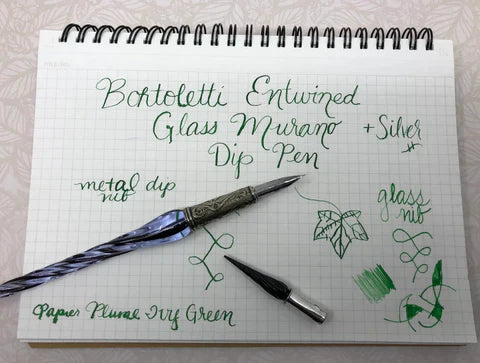 Bortoletti Entwined
Glass Murano + Silver
Dip Pen
metal dip
nib
glass
nib
Papier Plume Ivy Green